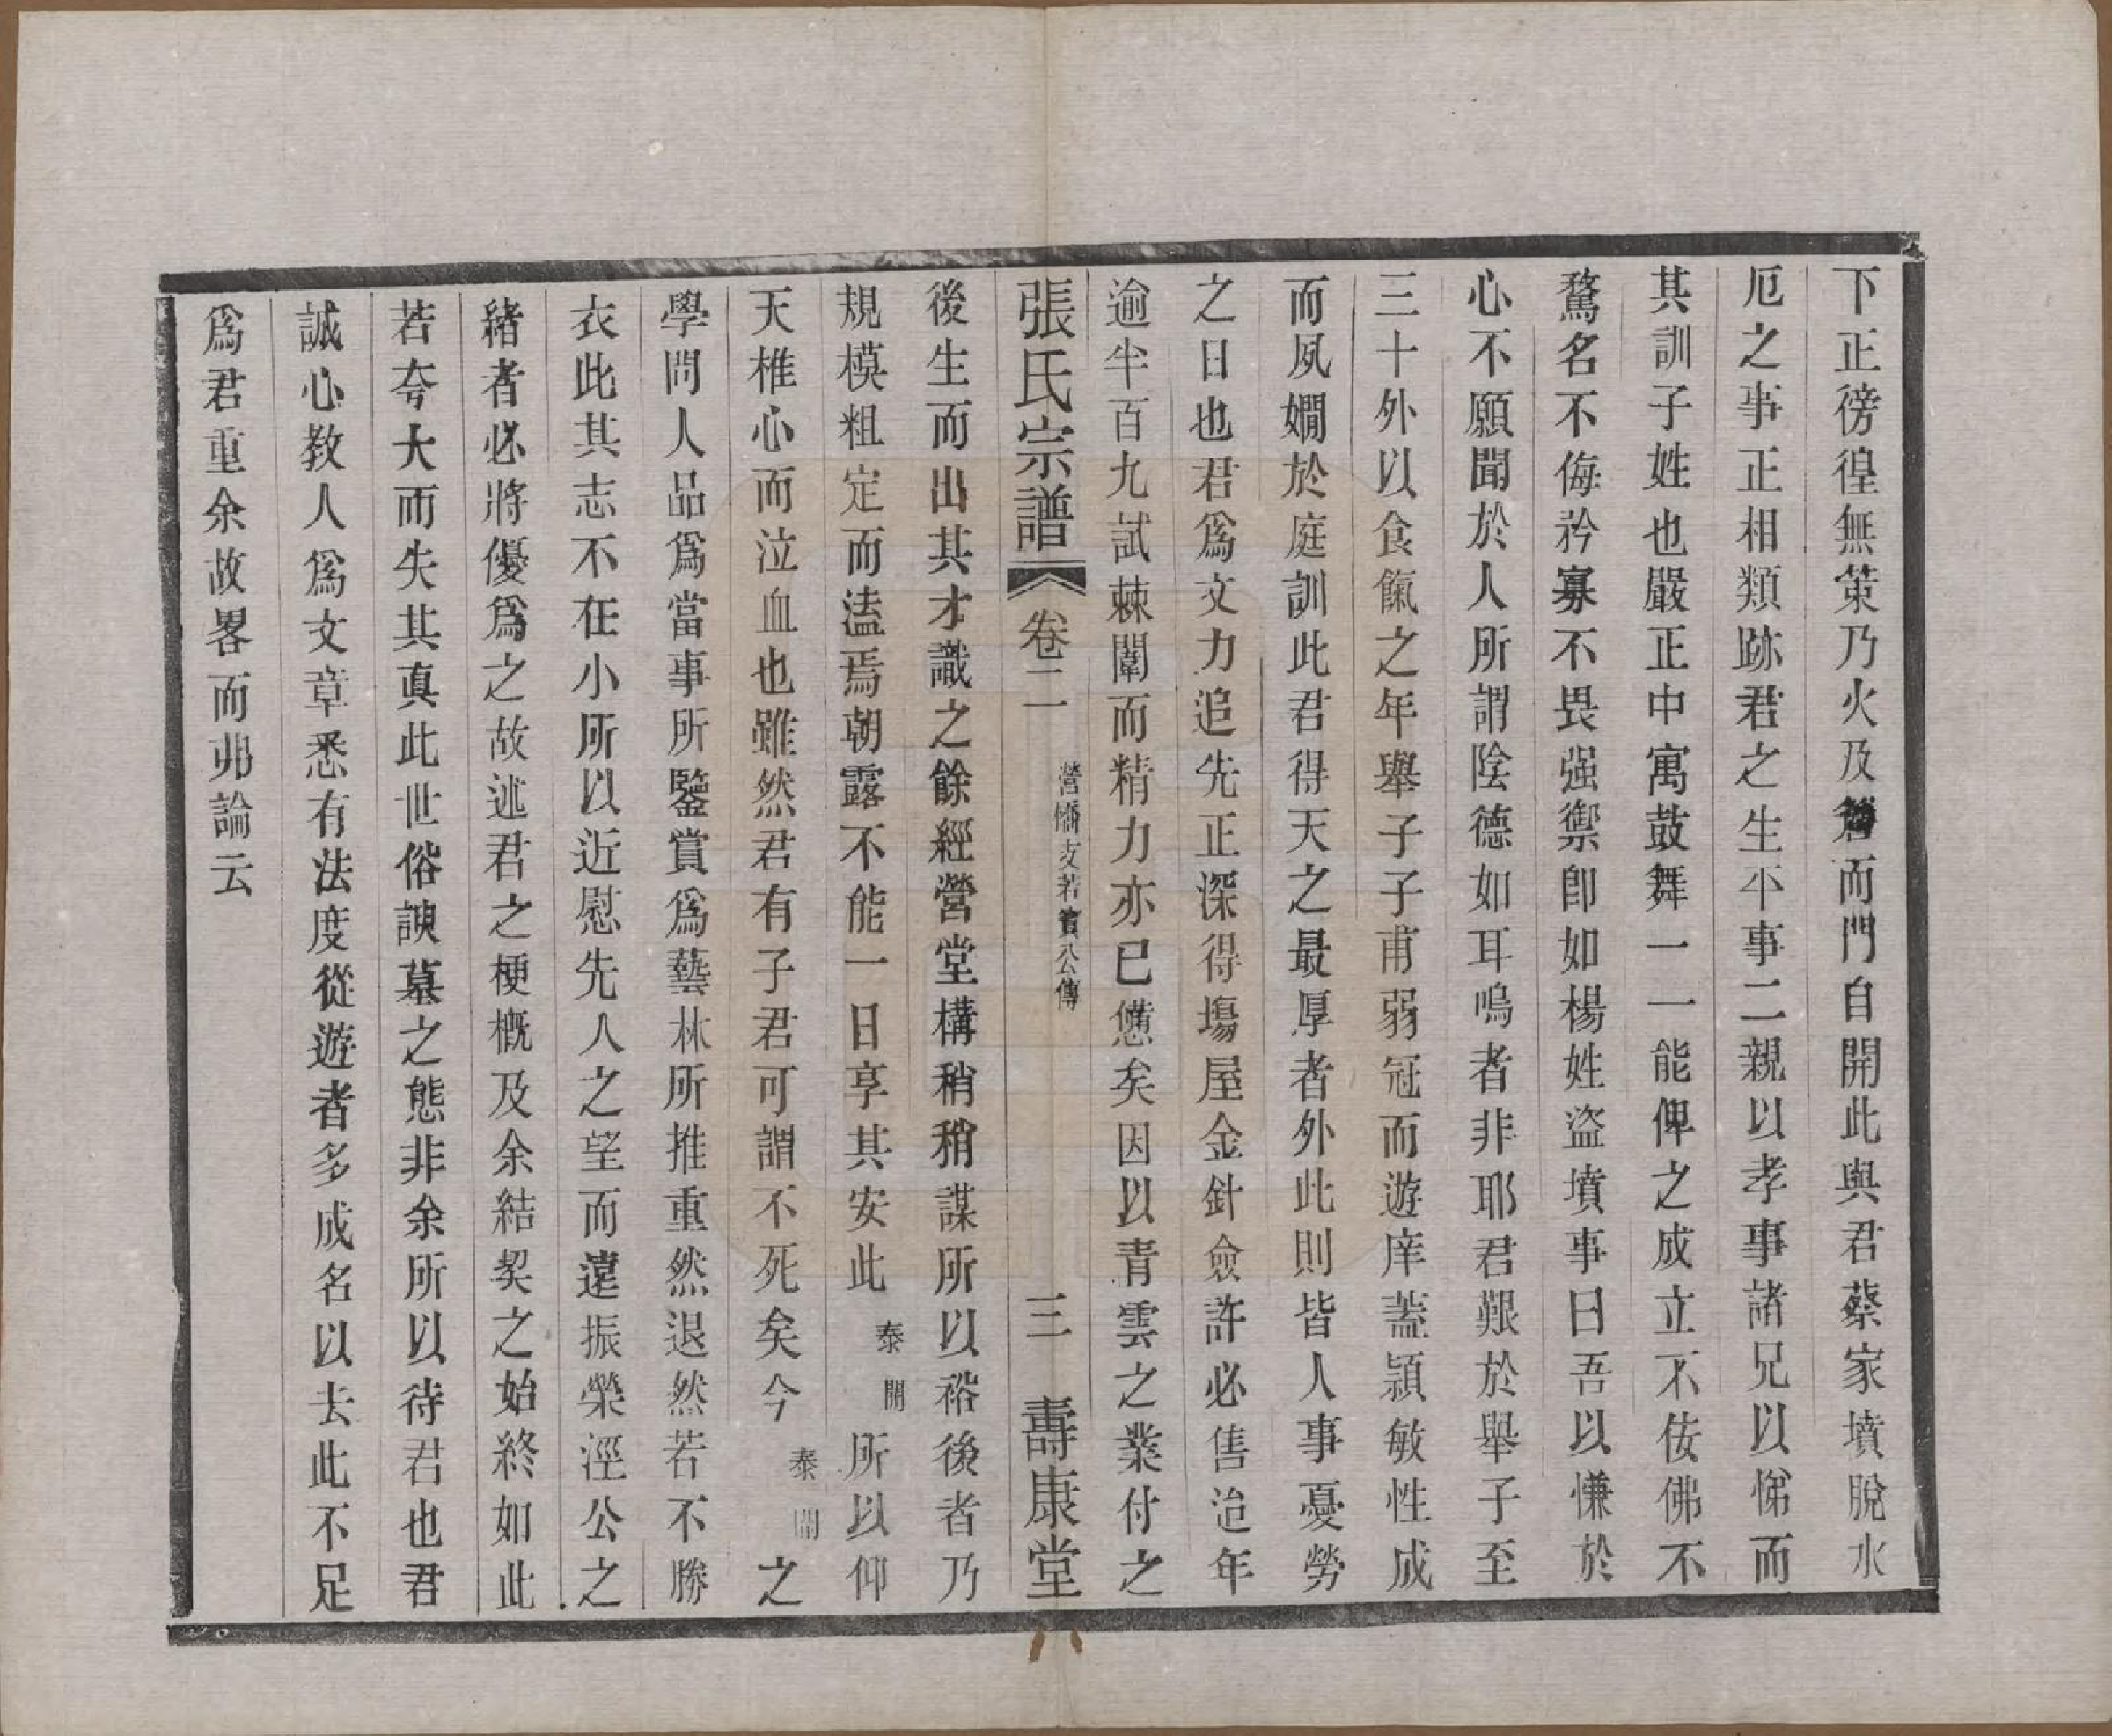 下正徬徨無策乃火及簷而門自開此與君蔡家墳脫水
厄之事正相類跡君之生不事二親以孝事諸兄以悌而
其訓子姓也嚴正中寓鼓舞一一能俾之成立不佞佛不
騖名不侮矜寡不畏强禦卽如楊姓盜墳事曰吾以慊於
心不願聞於人所謂陰德如耳鳴者非耶君艱於舉子至
三十外以食餼之年舉子子甫弱冠而遊庠蓋頴敏性成
而夙嫺於庭訓此君得天之最厚者外此則皆人事憂勞
之日也君爲文力追先正深得塲屋金針僉許必售迨年
逾半百九試棘闈而精力亦已憊矣因以青雲之業付之
張氏宗譜 卷二 營橋支若賓公傳 三 壽康堂
後生而出其才識之餘經營堂構稍稍謀所以裕後者乃
規模粗定而溘焉朝露不能一日享其安此泰開所以仰
天椎心而泣血也雖然君有子君可謂不死矣今泰開之
學問人品爲當事所鑒賞爲藝林所推重然退然若不勝
衣此其志不在小所以近慰先人之望而遠振榮涇公之
緒者必將優爲之故述君之梗概及余結契之始終如此
若夸大而失其眞此世俗諛墓之態非余所以待君也君
誠心教人爲文章悉有法度從遊者多成名以去此不足
爲君重余故畧而弗論云